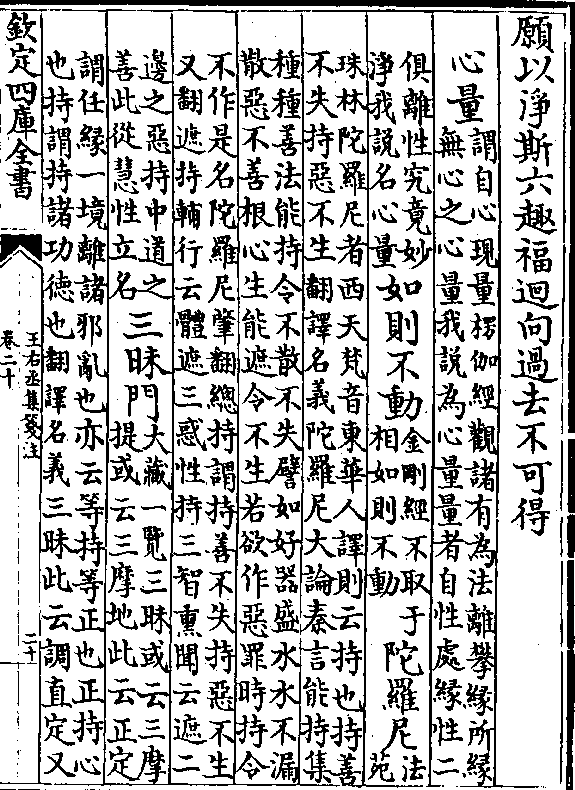 願以淨斯六趣福迴向過去不可得
心量
謂自心現量楞伽經觀諸有為法離攀緣所緣
無心之心量我說為心量量者自性處緣性二
俱離性究竟妙
淨我說名心量
如則不動
金剛經不取
相如則不動
于陀羅尼
法
苑
珠林陀羅尼者西天梵音東華人譯則云持也持善
不失持惡不生翻譯名義陀羅尼大論秦言能持集
種種善法能持令不散不失譬如好器盛水水不漏
散惡不善根心生能遮令不生若欲作惡罪時持令
不作是名陀羅尼肇翻總持謂持善不失持惡不生
又翻遮持輔行云體遮三惑性持三智熏聞云遮二
邊之惡持中道之
善此從慧性立名
三昧門
大藏一覽三昧或云三摩
提或云三摩地此云正定
謂任緣一境離諸邪亂也亦云等持等正也正持心
也持謂持諸功德也翻譯名義三昧此云調直定又
欽定四庫全書
王右丞集箋注
卷二十
二十